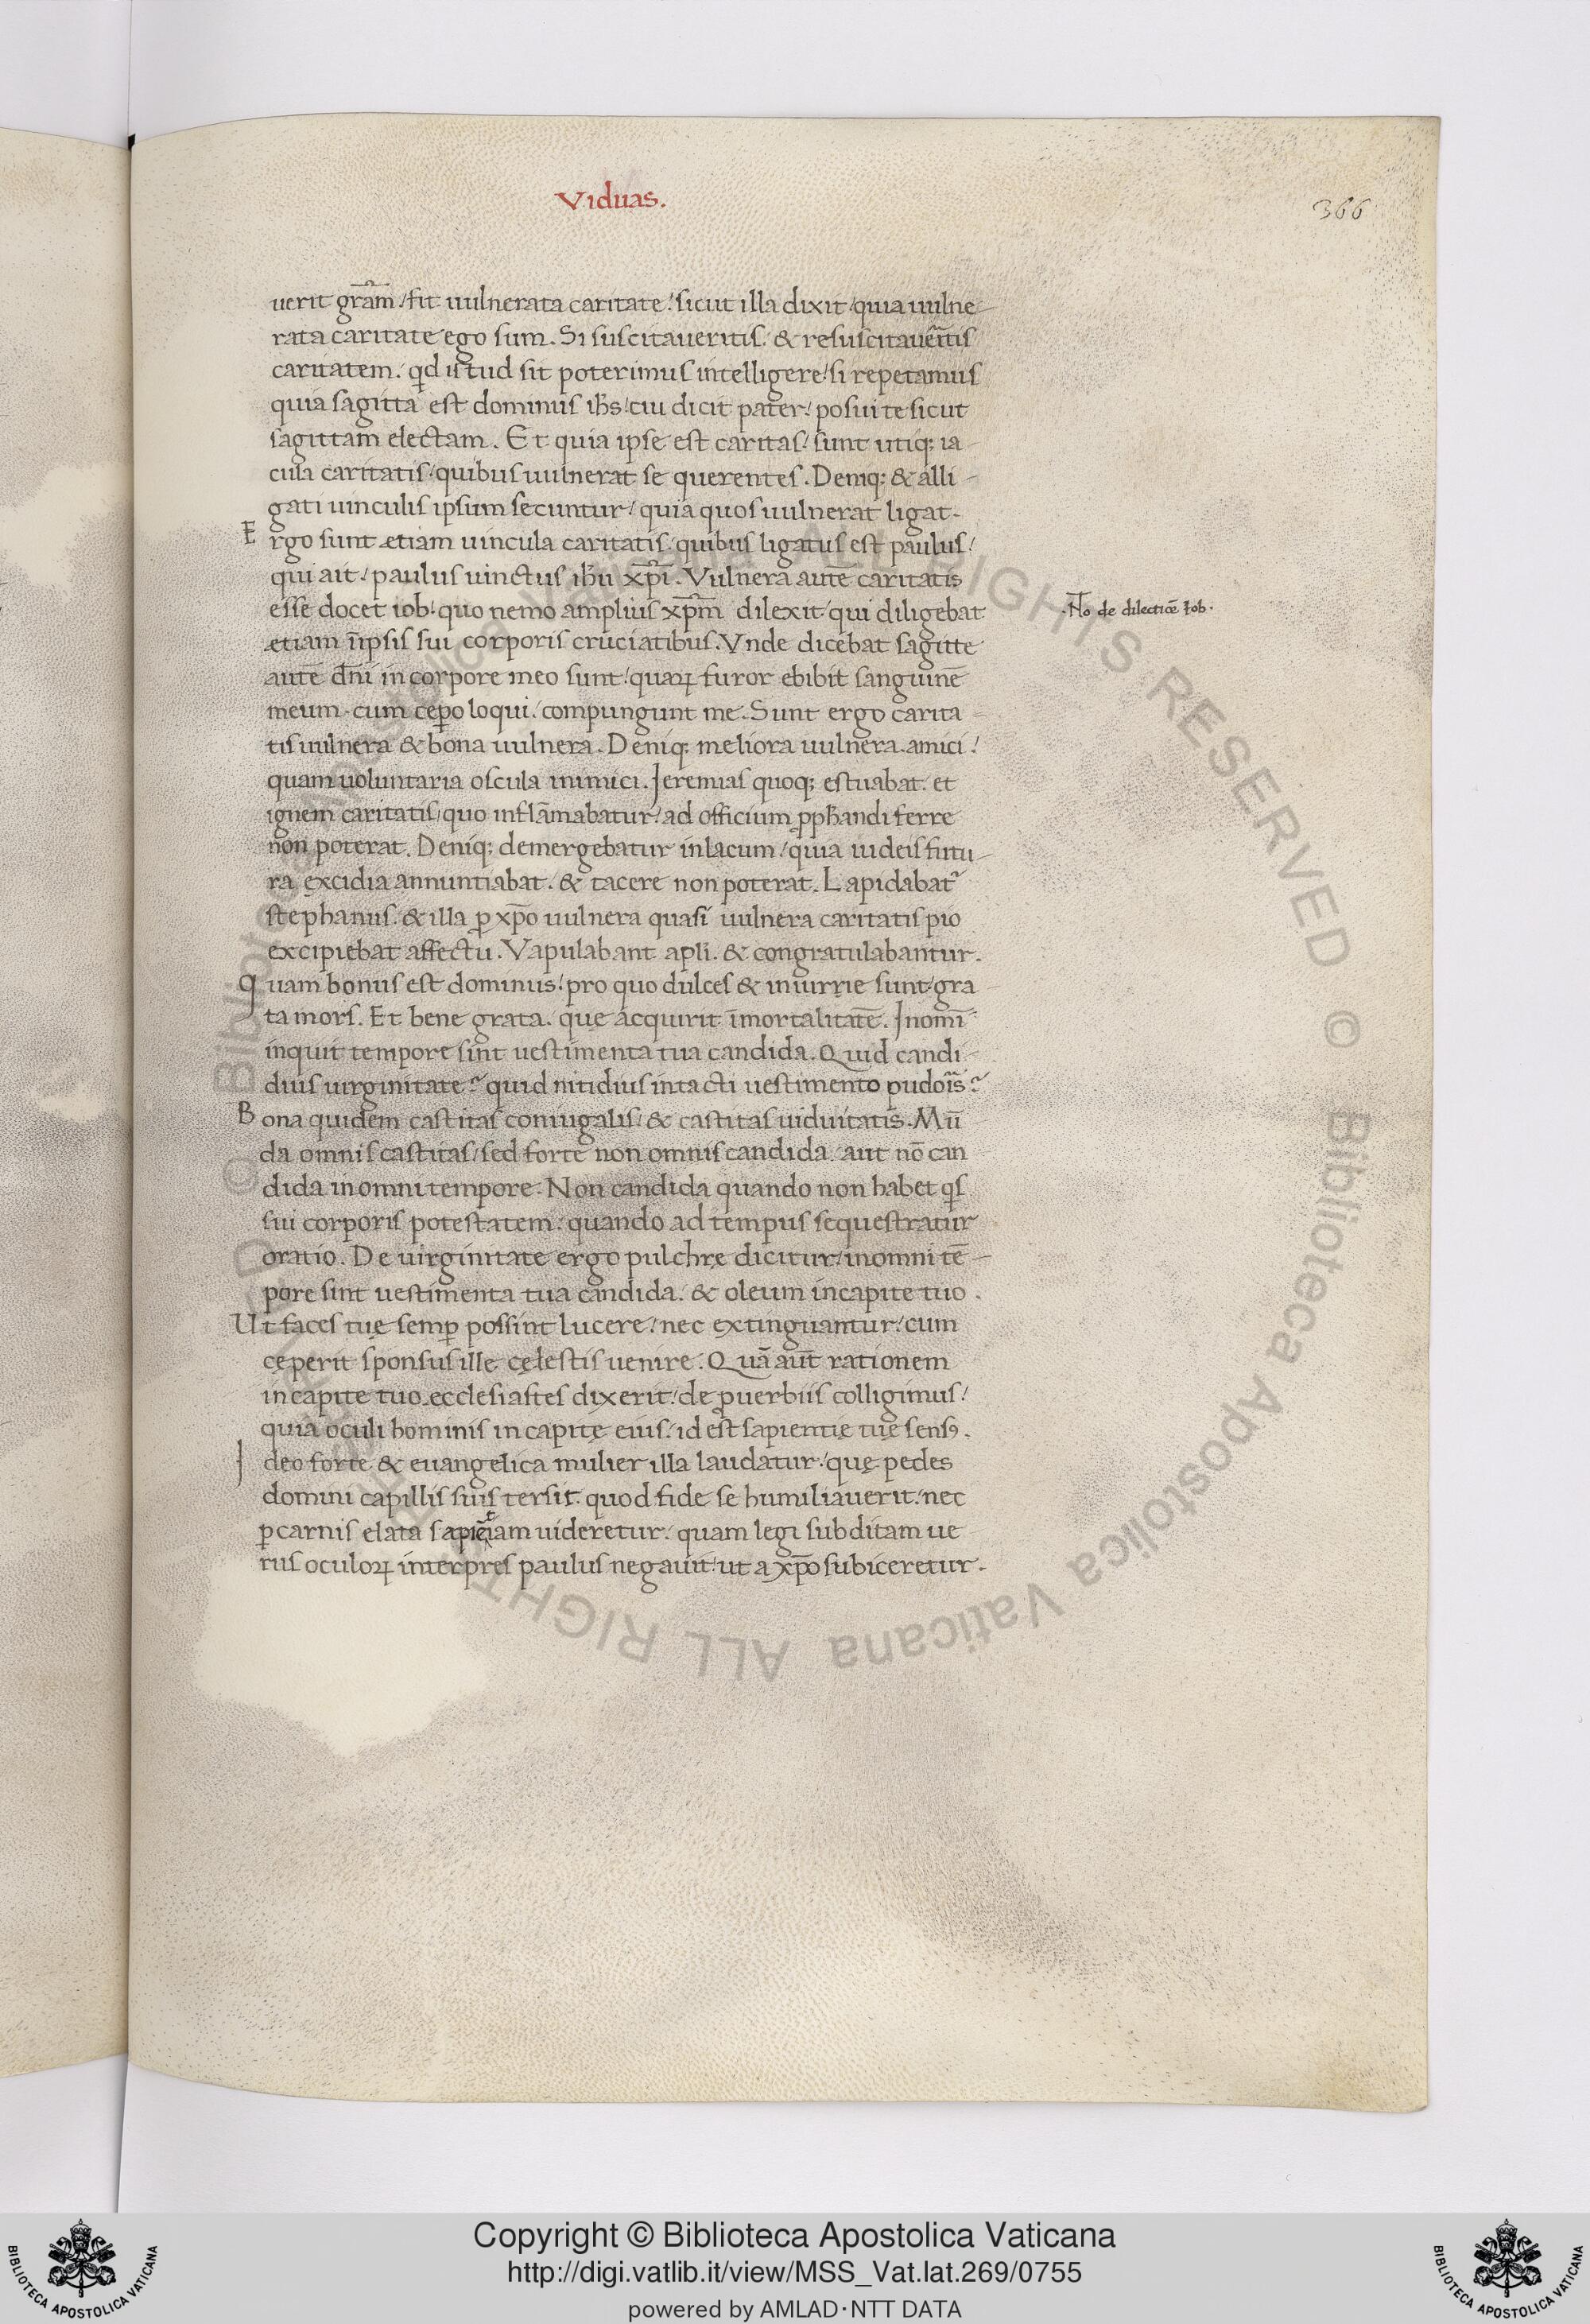 Viduas.
366
uerit gr̃am / fit uulnerata caritate / sicut illa dixit / quia uulne-
rata caritate ego sum. Si suscitaueritis. & resuscitauer̃itis
caritatem. qd istud sit poterimus intelligere / si repetamus
quia sagitta est dominus ihs / cui dicit pater / posui te sicut
sagittam electam. Et quia ipse est caritas / sunt utiq; ia-
cula caritatis / quibus uulnerat se querentes. Deniq; & alli-
gati uinculis ipsum secuntur / quia quos uulnerat ligat.
Ergo sunt ætiam uincula caritatis / quibus ligatus est paulus /
qui ait / paulus uinctus ihu xp̃i. Vulnera autē caritatis
esse docet iob / quo nemo amplius xp̃m dilexit / qui diligebat
·No de dilectiōe Iob·
ætiam ĩ ipsis sui corporis cruciatibus. Vnde dicebat sagitte
autē dñi in corpore meo sunt / quaꝝ furor ebibit sanguinē
meum. cum cepero loqui / compungunt me. Sunt ergo carita-
tis uulnera & bona uulnera. Deniq; meliora uulnera amici /
quam uoluntaria oscula inimici. Jeremias quoq; estuabat. et
ignem caritatis / quo inflāmabatur / ad officium ꝓph̃andi ferre
non poterat. Deniq; demergebatur in lacum / quia iudeis futu-
ra excidia annuntiabat. & tacere non poterat. Lapidabat᷑
stephanus. & illa ꝓ xp̃o uulnera quasi uulnera caritatis pio
excipiebat affectu. Vapulabant apl̃i. & congratulabantur.
Quam bonus est dominus / pro quo dulces & iniurię sunt / gra-
ta mors. Et bene grata. quę acquirit ĩmortalitatē. Jn omĩ
inquit tempore sint uestimenta tua candida. Quid candi-
dius uirginitate? quid nitidius intacti uestimento pudoris?
Bona quidem castitas coniugalis / & castitas uiduitatis. Mū-
da omnis castitas / sed forte non omnis candida. aut nō can
dida in omni tempore. Non candida quando non habet qs
sui corporis potestatem. quando ad tempus sequestratur
oratio. De uirginitate ergo pulchre dicitur / in omni tē-
pore sint uestimenta tua candida. & oleum in capite tuo.
Ut faces tuę semꝑ possint lucere / nec extinguantur / cum
cęperit sponsus ille cęlestis uenire. Quā aut̃ rationem
in capite tuo ecclesiastes dixerit / de ꝓuerbiis colligimus /
quia oculi hominis in capite eius / id est sapientię tuę sensꝰ.
Jdeo forte & euangelica mulier illa laudatur / quę pedes
domini capillis suis tersit. quod fide se humiliauerit / nec
ꝑ carnis elata sapiētiam uideretur / quam legi subditam ue
rus oculoꝝ interpres paulus negauit / ut a xp̃o subiceretur.
© Biblioteca Apostolica Vaticana ALL RIGHTS RESERVED
Copyright © Biblioteca Apostolica Vaticana
http://digi.vatlib.it/view/MSS_Vat.lat.269/0755
powered by AMLAD·NTT DATA
BIBLIOTECA APOSTOLICA VATICANA
BIBLIOTECA APOSTOLICA VATICANA